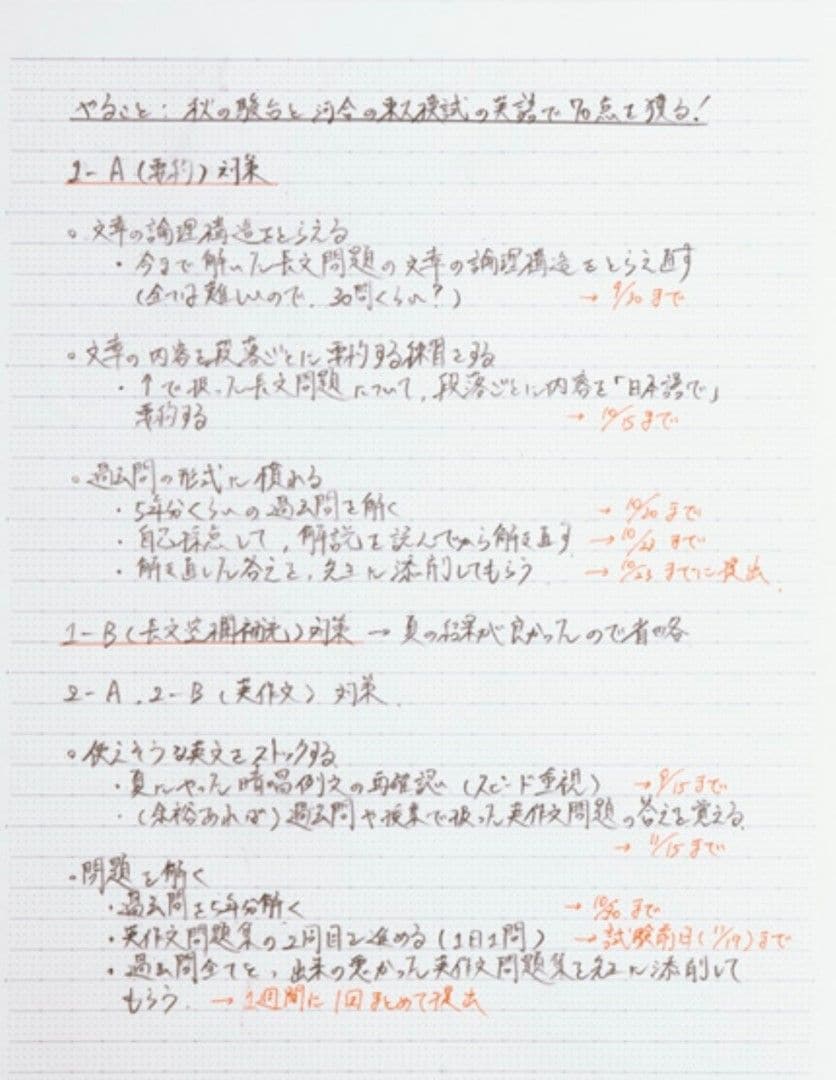 やること：秋の駿台と河合の東大模試の英語で70点を獲る！
1-A（要約）対策
○文章の論理構造をとらえる
・今まで解いた長文問題の文章の論理構造をとらえ直す
（全ては難しいので、30問くらい？） → 9/30まで
○文章の内容を段落ごとに要約する練習をする
・↑で扱った長文問題について、段落ごとに内容を「日本語で」
要約する → 10/15まで
○過去問の形式に慣れる
・5年分くらいの過去問を解く → 10/20まで
・自己採点して、解説を読んでから解き直す → 10/23まで
・解き直した答えを、先生に添削してもらう → 10/23までに提出
1-B（長文空欄補充）対策 → 夏の結果が良かったので省略
2-A．2-B（英作文）対策
○使えそうな英文をストックする
・夏にやった暗唱例文の再確認（スピード重視） → 9/15まで
・（余裕あれば）過去問や授業で扱った英作文問題の答えを覚える
→ 11/15まで
・問題を解く
・過去問を5年分解く → まで
・英作文問題集の2周目を進める（1日1問） → 試験前日（11/19）まで
・過去問全てと、出来の悪かった英作文問題集を先生に添削して
もらう → 1週間に1回まとめて提出